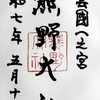 雲國一之宮
熊野大
和七年五月十